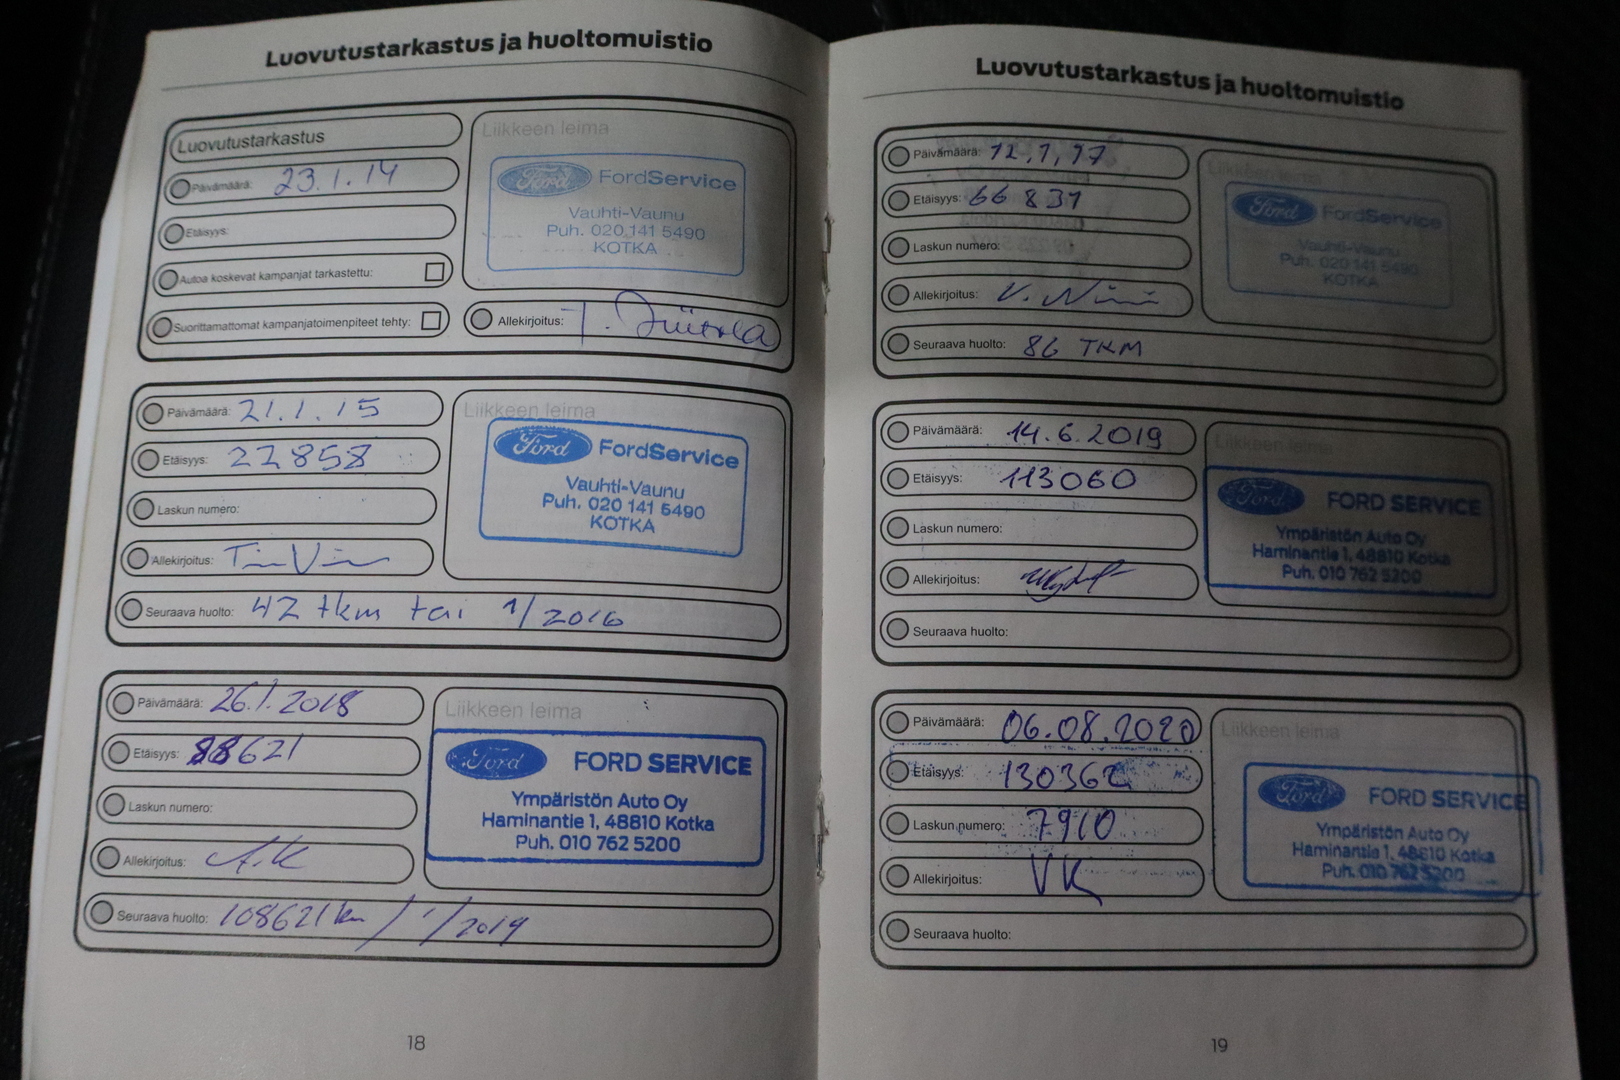 Luovutustarkastus ja huoltomuistio
Luovutustarkastus
Päivämäärä: 23.1.14
Etäisyys:
Autoa koskevat kampanjat tarkastettu:
Suorittamattomat kampanjatoimenpiteet tehty:
Liikkeen leima
Ford FordService
Vauhti-Vaunu
Puh. 020 141 5490
KOTKA
Allekirjoitus:
Päivämäärä: 21.1.15
Etäisyys: 22858
Laskun numero:
Allekirjoitus:
Seuraava huolto: 42 tkm tai 1/2016
Liikkeen leima
Ford FordService
Vauhti-Vaunu
Puh. 020 141 5490
KOTKA
Päivämäärä: 26.1.2018
Etäisyys: 88621
Laskun numero:
Allekirjoitus: A.K
Seuraava huolto: 108621 km / 1/2019
Liikkeen leima
Ford FORD SERVICE
Ympäristön Auto Oy
Haminantie 1, 48810 Kotka
Puh. 010 762 5200
18
Luovutustarkastus ja huoltomuistio
Päivämäärä: 12.1.17
Etäisyys: 66 831
Laskun numero:
Allekirjoitus:
Seuraava huolto: 86 TKM
Liikkeen leima
Ford FordService
Vauhti-Vaunu
Puh. 020 141 5490
KOTKA
Päivämäärä: 14.6.2019
Etäisyys: 113060
Laskun numero:
Allekirjoitus:
Seuraava huolto:
Liikkeen leima
Ford FORD SERVICE
Ympäristön Auto Oy
Haminantie 1, 48810 Kotka
Puh. 010 762 5200
Päivämäärä: 06.08.2020
Etäisyys: 130362
Laskun numero: 7910
Allekirjoitus: VK
Seuraava huolto:
Liikkeen leima
Ford FORD SERVICE
Ympäristön Auto Oy
Haminantie 1, 48810 Kotka
Puh. 010 762 5200
19